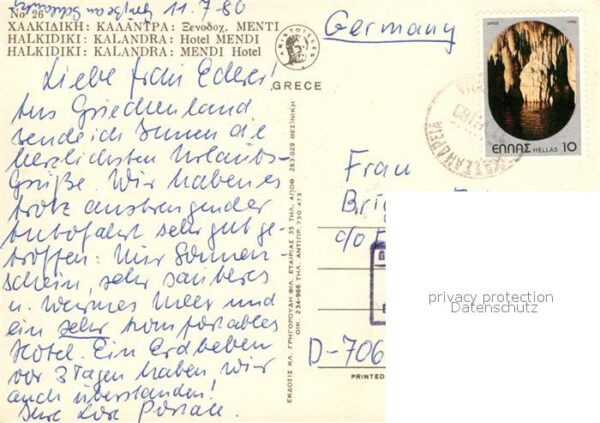 No 26 11.7.80
ΧΑΛΚΙΔΙΚΗ: ΚΑΛΑΝΤΡΑ: Ξενοδοχ. ΜΕΝΤΙ
HALKIDIKI: KALANDRA: Hotel MENDI
HALKIDIKI: KALANDRA: MENDI Hotel
GRECE
Liebe Frau Ederer!
Aus Griechenland
sende ich Ihnen die
herzlichsten Urlaubs-
Grüße. Wir haben es
trotz anstrengender
Autofahrt sehr gut ge-
troffen: Nur Sonnen-
schein, sehr sauberes
u. warmes Meer und
ein sehr komfortables
Hotel. Ein Erdbeben
vor 3 Tagen haben wir
auch überstanden!
Ihre
ΕΚΔΟΣΙΣ ΚΛ. ΓΡΗΓΟΡΟΥΔΗ ΦΙΛ. ΕΤΑΙΡΙΑΣ 35 ΤΗΛ. ΑΠΟΘ. 263-029 ΘΕΣ)ΝΙΚΗ
ΟΙΚ. 234-966 ΤΗΛ. ΑΝΤΙΠΡ. 730 473
Germany
1980
ΕΛΛΑΣ HELLAS 10
Frau
Brig
c/o
D-706
PRINTED
privacy protection
Datenschutz